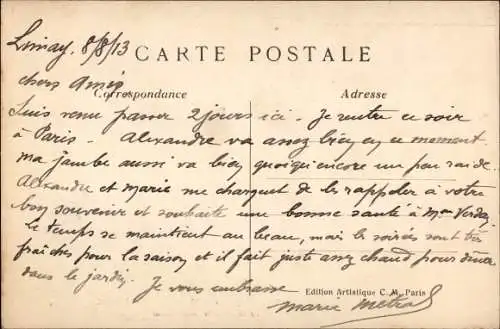 Limay. 8/8/13
CARTE POSTALE
chers Amis
Correspondance
Adresse
Suis venu passer 2 jours ici. Je rentre ce soir
à Paris. Alexandre va assez bien en ce moment
ma jambe aussi va bien quoiqu'encore un peu raide.
Alexandre et Marie me chargent de les rappeler à votre
bon souvenir et souhaite une bonne santé à Mme
Le temps se maintient au beau, mais les soirées sont très
fraîches pour la saison et il fait juste assez chaud pour diner
dans le jardin. Je vous embrasse
Edition Artistique C. M. Paris
Marie